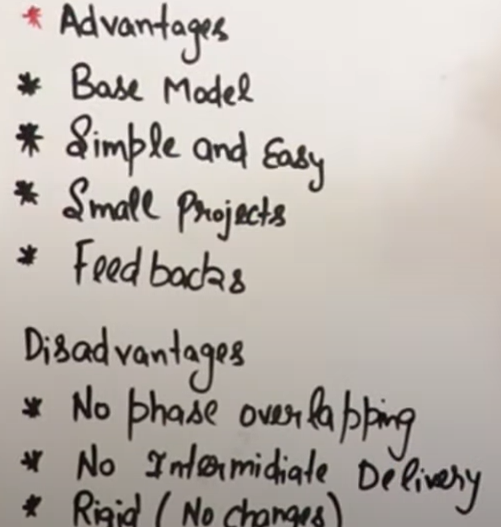 * Advantages
* Base Model
* Simple and Easy
* Small Projects
* Feedbacks
Disadvantages
* No phase overlapping
* No Intermidiate Delivery
* Rigid (No changes)